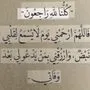 - كُلُّنَا للهِ رَاجِعُونَ -
فَاللَّهُمَّ ارْحَمْنِي يَوْمَ لَا يُسْمَعُ لِقَلْبِي
نَبْضٌ، وَارْزُقْنِي بِمَنْ يَدْعُو لِي بَعْدَ
وَفَاتِي